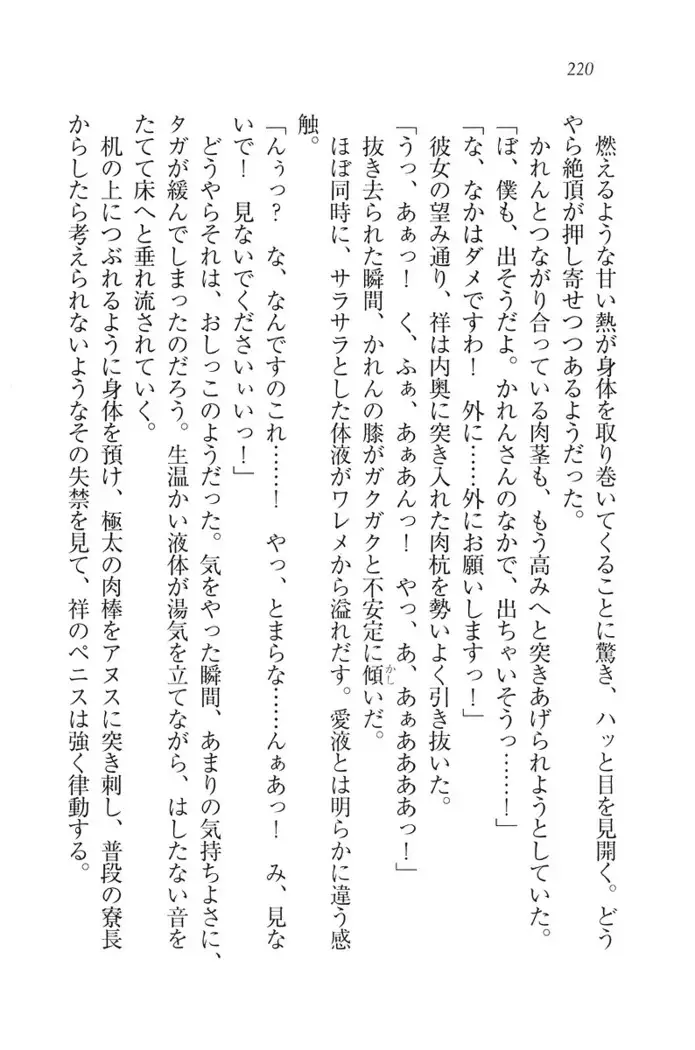 220
燃えるような甘い熱が身体を取り巻いてくることに驚き、ハッと目を見開く。どう
やら絶頂が押し寄せつつあるようだった。
かれんとつながり合っている肉茎も、もう高みへと突きあげられようとしていた。
「ぼ、僕も、出そうだよ。かれんさんのなかで、出ちゃいそうっ……！」
「な、なかはダメですわ！　外に……外にお願いしますっ！」
彼女の望み通り、祥は内奥に突き入れた肉杭を勢いよく引き抜いた。
「うっ、あぁっ！　く、ふぁ、あぁあんっ！　やっ、あ、あぁああああっ！」
抜き去られた瞬間、かれんの膝がガクガクと不安定に傾いだ。
かし
ほぼ同時に、サラサラとした体液がワレメから溢れだす。愛液とは明らかに違う感
触。
「んぅっ？　な、なんですのこれ……！　やっ、とまらな……んぁあっ！　み、見な
いで！　見ないでくださいぃいっ！」
どうやらそれは、おしっこのようだった。気をやった瞬間、あまりの気持ちよさに、
タガが緩んでしまったのだろう。生温かい液体が湯気を立てながら、はしたない音を
たてて床へと垂れ流されていく。
机の上につぶれるように身体を預け、極太の肉棒をアヌスに突き刺し、普段の寮長
からしたら考えられないようなその失禁を見て、祥のペニスは強く律動する。